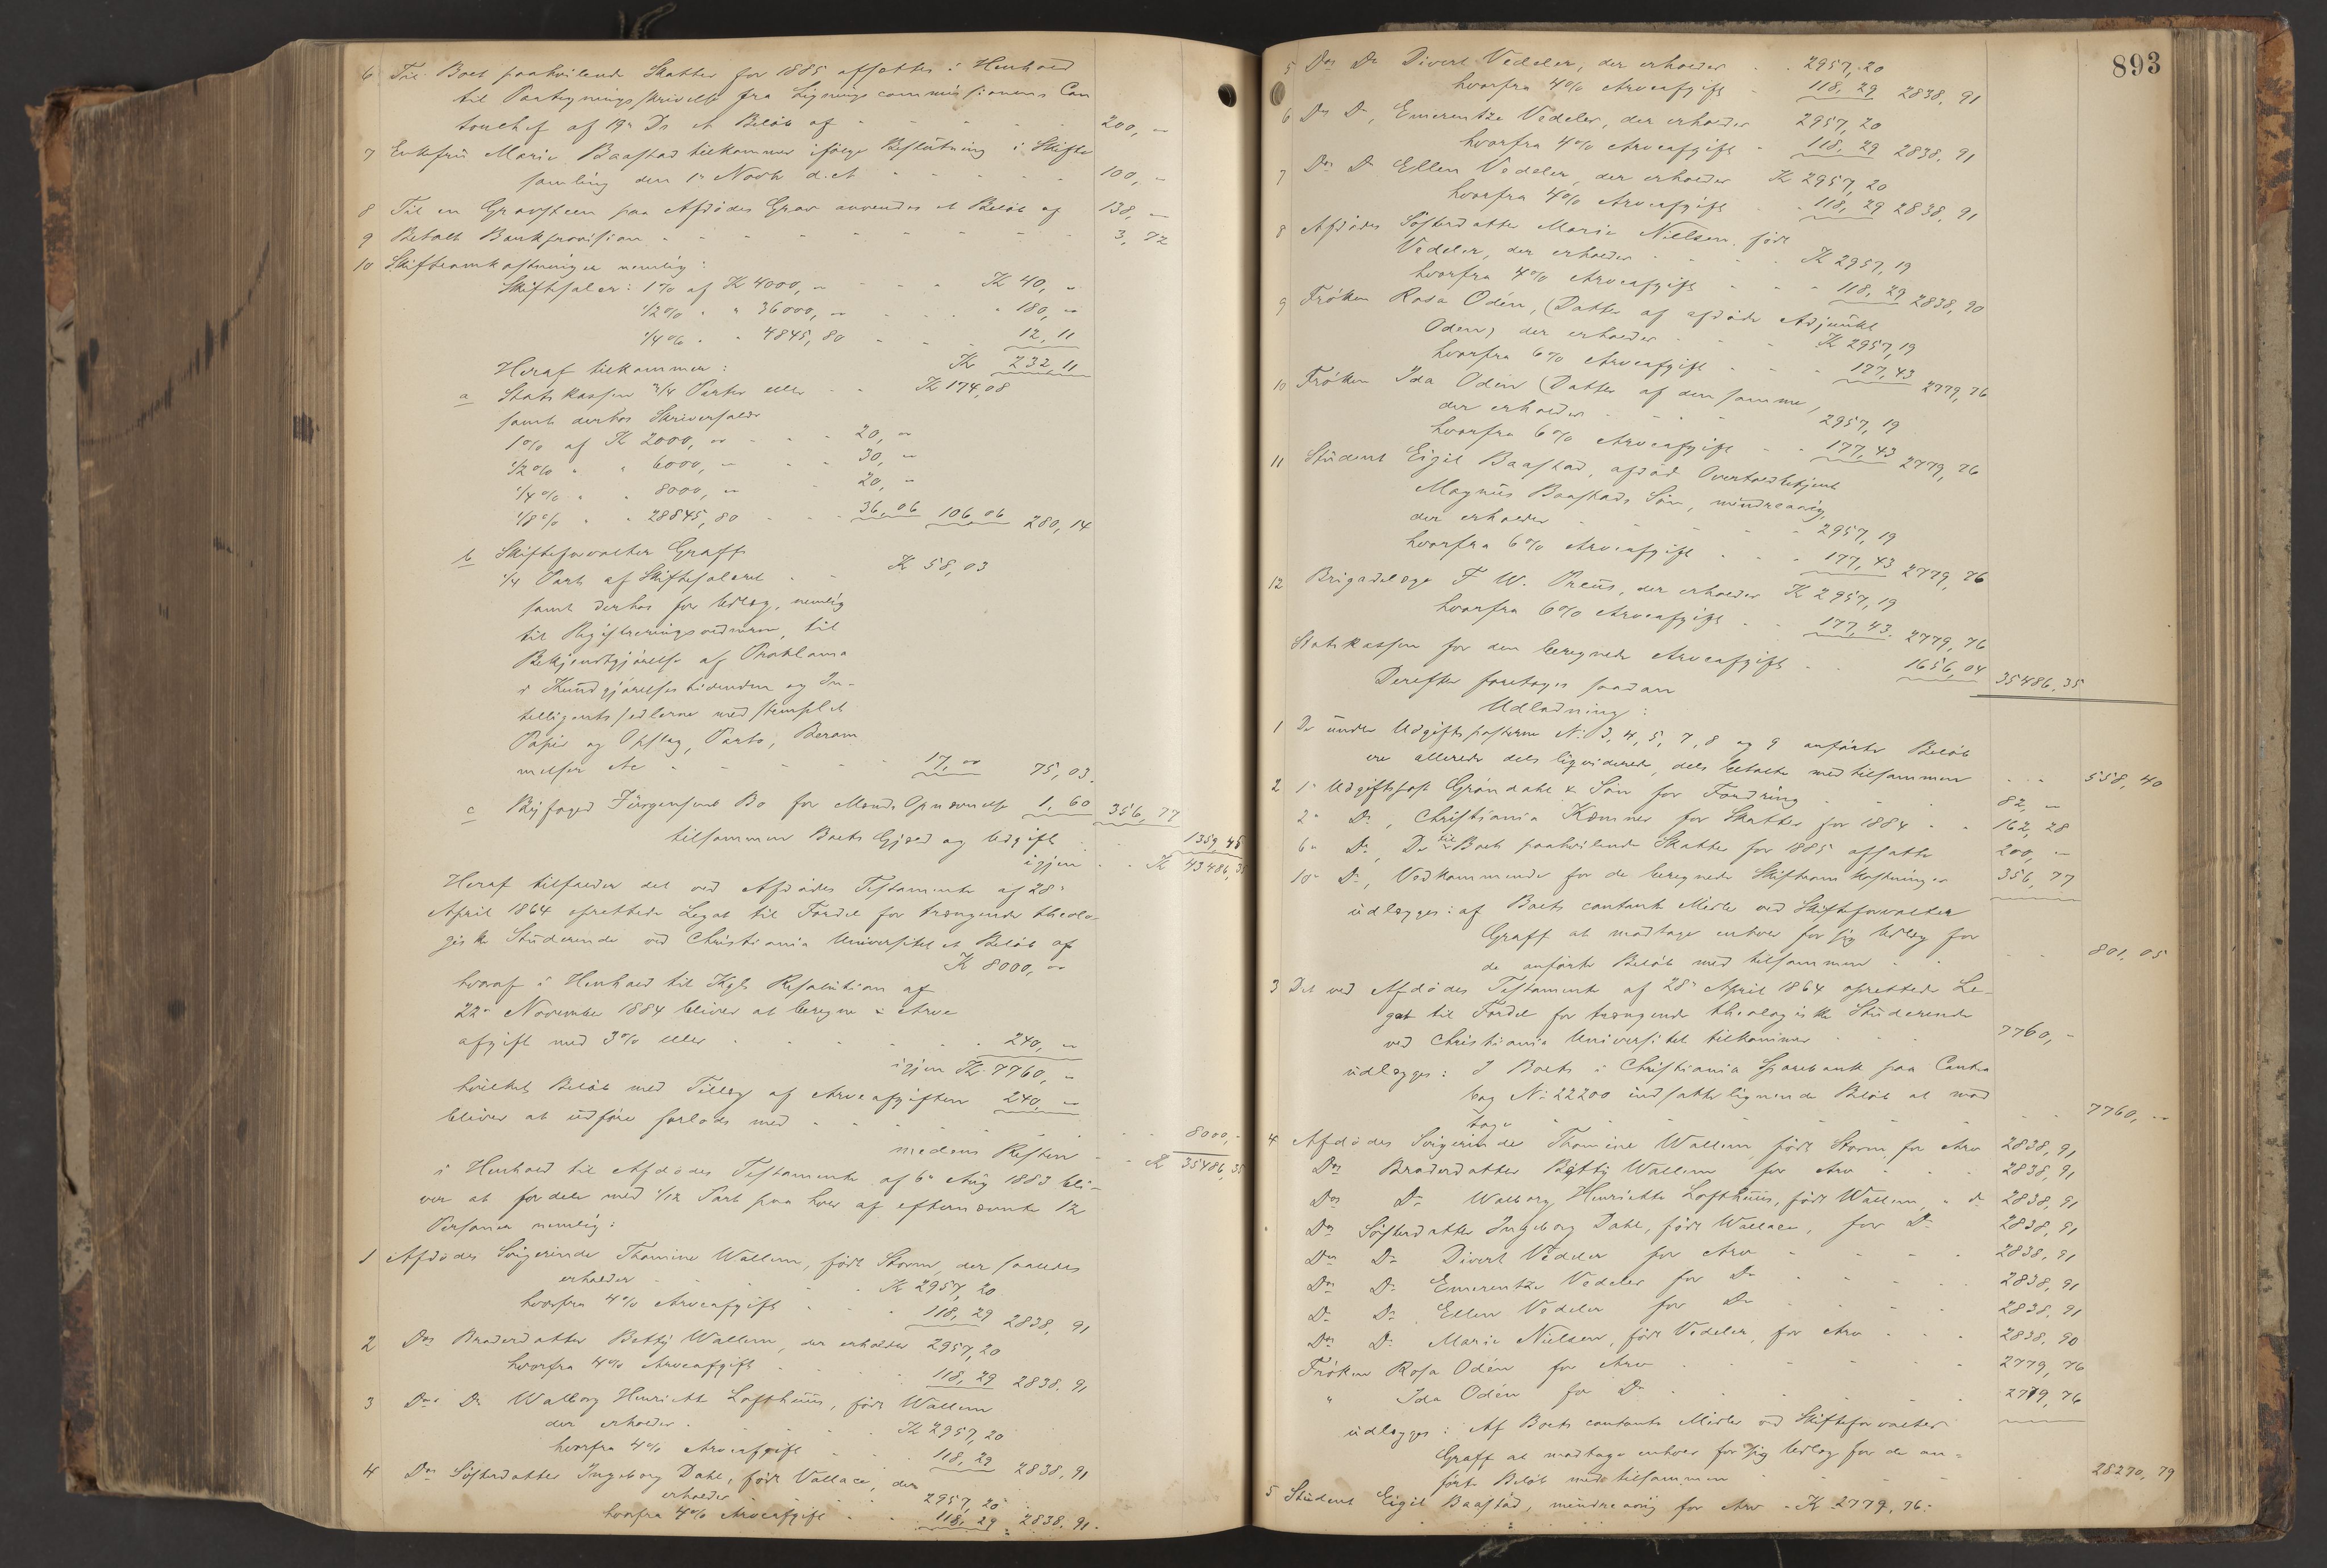 6 Til Boet paahvilende Skatter for 1885 afsættes i Henhold
til Paategningsskrivelse fra Ligningscommissionens Con
tour af 19de Ds et Beløb af - - - 200, "
7 Enkefru Marie Baastad tilkommer ifølge Beslutning i Skifte
samling den 1ste Novbr d.A. - - - 100, "
8 Til en Gravsteen paa Afdødes Grav anvendes et Beløb af 138, "
9 Betalt Bankprovision - - - 3, 72
10 Skifteomkostninger nemlig:
Skiftesaler: 1% af K 4000, " - - K 40, "
1/2% " " 36000, " - - " 180, "
1/4% " " 4845, 80 - - 12, 11
K 232, 11
Heraf tilkommer:
a Statskassen 3/4 Parter eller - - K 174,08
samt derhos Skriversaler
1% af K 2000, " - - 20, "
1/2% " " 6000, " - - 30, "
1/4% " " 8000, " - - 20, "
1/8% " " 28845, 80 - - 36, 06 106, 06 280, 14
b Skifteforvalter Graff
1/4 Part af Skiftesaleret - - K 58, 03
samt derhos for Udlæg, nemlig
til Registreringsvidnerne, til
Bekjendtgjørelse af Proklama
i Kundgjørelsestidenden og In-
telligentssedlerne med stemplet
Papir og Opslag, Porto, Beram
melser etc - - - 17, " 75, 03.
c Byfoged Jürgensens Bo for Mænds Opnævnelse 1, 60 356, 77
tilsammen Boets Gjæld og Udgift - - 1359, 45
igjen - - K 43486, 35
Heraf tilfalder det ved Afdødes Testamente af 28de
April 1864 oprettede Legat til Fordel for trængende theolo-
giske Studerende ved Christiania Universitet et Beløb af
K 8000, "
hvoraf i Henhold til Kgl. Resolution af
22de November 1884 bliver at beregne i Arve
afgift med 3% eller - - - 240, "
igjen K 7760, "
hvilket Beløb med Tillæg af Arveafgiften 240, "
bliver at udføre forlods med - - - 8000, "
medens Resten - - K 35486, 35
i Henhold til Afdødes Testamente af 6te Aug 1883 bli-
ver at fordele med 1/12 Part paa hver af efternævnte 12
Personer nemlig:
1 Afdødes Svigerinde Thomine Wallem, født Storm, der saaledes
erholder - - K 2957, 20
hvorfra 4% Arveafgift - - 118, 29 2838, 91
2 Ds Broderdatter Betsy Wallem, der erholder 2957, 20
hvorfra 4% Arveafgift - - 118, 29 2838. 91
3 Ds Do Walborg Henriette Lofthuus, født Wallem
der erholder - - K 2957, 20
hvorfra 4% Arveafgift - - 118, 29 2838, 91
4 Ds Søsterdatter Ingeborg Dahl, født Vallace, der
erholder - - 2957, 20
hvorfra 4% Arveafgift - - 118, 29 2838. 91.
893
5 Ds Do Divert Vedeler, der erholder - - 2957, 20
hvorfra 4% Arveafgift - 118, 29 2838. 91
6 Ds Do, Emerentze Vedeler, der erholder 2957, 20
hvorfra 4% Arveafgift - 118, 29 2838. 91
7 Ds Do Ellen Vedeler, der erholder K 2957, 20
hvorfra 4% Arveafgift - 118, 29 2838, 91
8 Afdødes Søsterdatter Marie Nielsen, født
Vedeler, der erholder - - K 2957, 19
hvorfra 4% Arveafgift - - 118, 29 2838, 90
9 Frøken Rosa Odén, (Datter af afdøde Adjunkt
Odén) der erholder - - K 2957, 19
hvorfra 6% Arveafgift - - 177, 43 2779, 76
10 Frøken Ida Odén (Datter af den samme,
der erholder - - 2957, 19
hvorfra 6% Arveafgift - - 177, 43 2779, 76
11 Student Eigil Baastad, afdød Overtoldbetjent
Magnus Baastads Søn, mindreaarig,
der erholder - - 2957, 19
hvorfra 6% Arveafgift - - 177, 43 2779, 76
12 Brigadelæge F. W. Preüs, der erholder K 2957, 19
hvorfra 6% Arveafgift - - 177, 43. 2779, 76
Statskassen for den beregnede Arveafgift - - 1656, 04 35486, 35
Derefter foretoges saadan
Udlodning:
1 De under Udgiftsposterne No 3, 4, 5, 7, 8 og 9 anførte Beløb
ere allerede dels liqviderede, dels betalte med tilsammen - - 558, 40
2 1ste Udgiftspost Grøndahl & Søn for Fordring - - 82, "
2den Do, Christiania Kæmner for Skatter for 1884 - - 162, 28
6te Do, De til Boets paahvilende Skatter for 1885 afsatte 200, "
10de Do, Vedkommende for de beregnede Skifteomkostninger 356, 77
udlægges: af Boets contante Midler ved Skifteforvalter
Graff at modtage enhver for sig Udlæg for
de anførte Beløb med tilsammen - - 801, 05
3 Det ved Afdødes Testamente af 28de April 1864 oprettede Le-
gat til Fordel for trængende theologiske Studerende
ved Christiania Universitet tilkommer - - 7760, "
udlægges: I Boets i Christiania Sparebank paa Contra
bog No 22200 indsatte lignende Beløb at mod
tage - - - 7760, "
4 Afdødes Svigerinde Thomine Wallem, født Storm, for Arv 2838, 91
Ds Broderdatter Betsy Wallem for Arv - - 2838, 91
Ds Do Walborg Henriette Lofthuus, født Wallem, " do 2838, 91
Ds Søsterdatter Ingeborg Dahl, født Wallace, for Do 2838, 91
Ds Do Divert Vedeler for Arv - - 2838, 91
Ds Do Emerentze Vedeler for Do - - 2838, 91
Ds Do Ellen Vedeler for Do - - 2838, 91
Ds Do Marie Nielsen, født Vedeler, for Arv - - 2838, 90
Frøken Rosa Odén for Arv - - 2779, 76
" Ida Odén for Do - - 2779, 76
udlægges: Af Boets contante Midler ved Skifteforvalter
Graff at modtage enhver for sig Udlæg for de an-
førte Beløb med tilsammen - - 28270, 79
5 Student Eigil Baastad, mindreaarig for Arv - K 2779, 76.